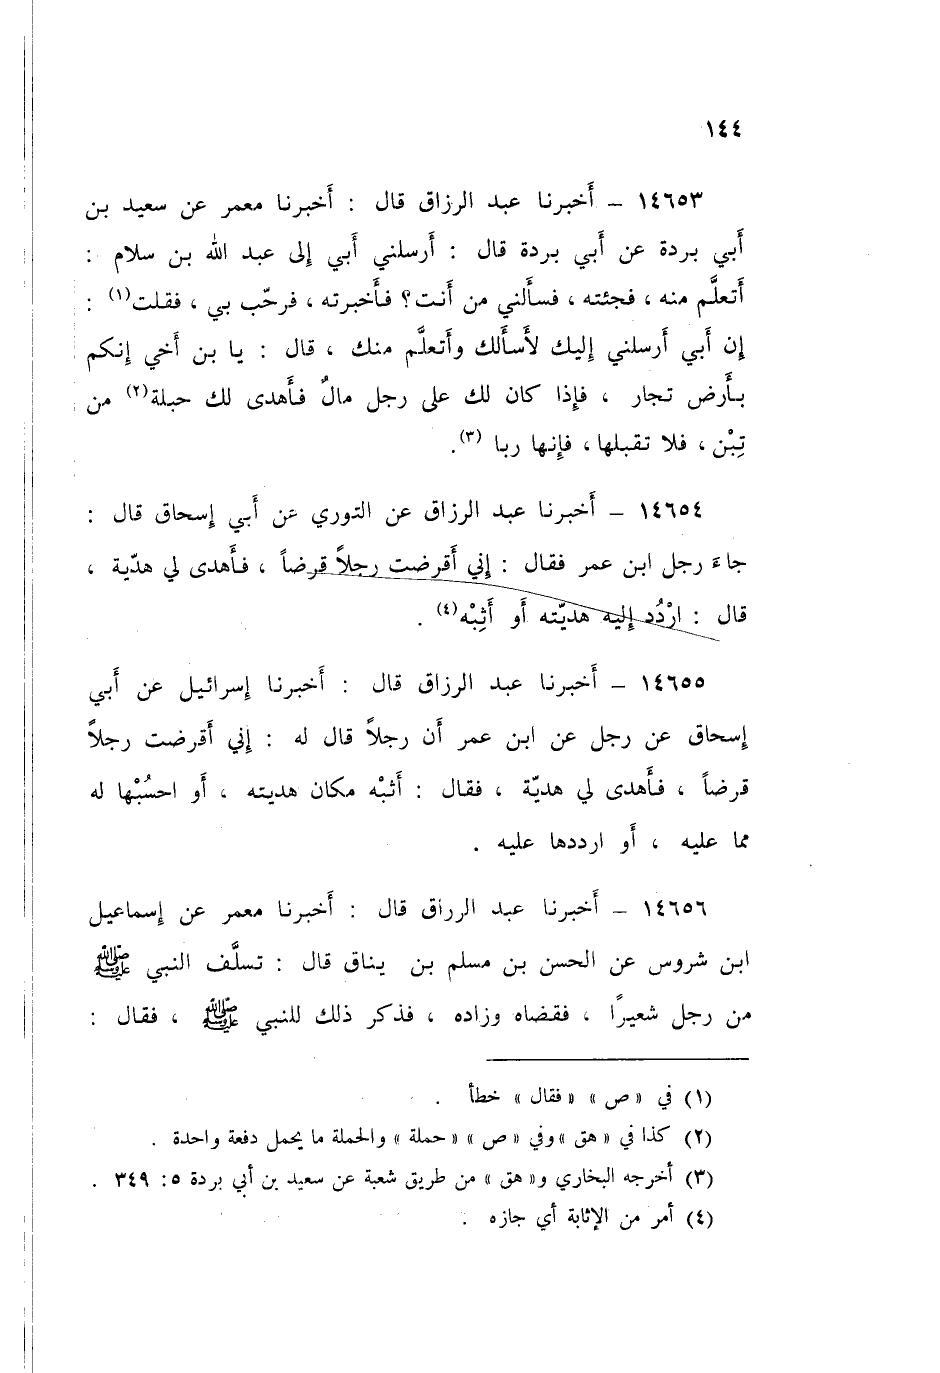 ١٤٤
١٤٦٥٣ – أَخبرنا عبد الرزاق قال : أَخبرنا معمر عن سعيد بن
أَبي بردة عن أَبي بردة قال : أَرسلني أَبي إلى عبد الله بن سلام :
أَتعلَّم منه ، فجئته ، فسأَلني من أَنت؟ فأَخبرته ، فرحّب بي ، فقلت(١) :
إن أَبي أَرسلني إليك لأَسأَلك وأَتعلَّم منك ، قال : يا بن أَخي إنكم
بأَرض تجار ، فإذا كان لك على رجل مالٌ فأَهدى لك حبلة(٢) من
تِبْن ، فلا تقبلها ، فإنها ربا (٣).
١٤٦٥٤ – أَخبرنا عبد الرزاق عن الثوري عن أَبي إسحاق قال :
جاءَ رجل ابن عمر فقال : إني أَقرضت رجلاً قرضاً ، فأَهدى لي هدّية ،
قال : ارْدُد إليه هديّته أَو أَثِبْه(٤) .
١٤٦٥٥ – أَخبرنا عبد الرزاق قال : أَخبرنا إسرائيل عن أَبي
إسحاق عن رجل عن ابن عمر أَن رجلاً قال له : إني أَقرضت رجلاً
قرضاً ، فأَهدى لي هديّة ، فقال : أَثبْه مكان هديته ، أَو احسُبْها له
مما عليه ، أَو ارددها عليه .
١٤٦٥٦ – أَخبرنا عبد الرزاق قال : أَخبرنا معمر عن إسماعيل
ابن شروس عن الحسن بن مسلم بن يناق قال : تسلَّف النبي ﷺ
من رجل شعيرًا ، فقضاه وزاده ، فذكر ذلك للنبي ﷺ ، فقال :
(١) في « ص » « فقال » خطأ .
(٢) كذا في « هق » وفي « ص » « حملة » والحملة ما يحمل دفعة واحدة .
(٣) أخرجه البخاري و« هق » من طريق شعبة عن سعيد بن أبي بردة ٥: ٣٤٩ .
(٤) أمر من الإثابة أي جازه .